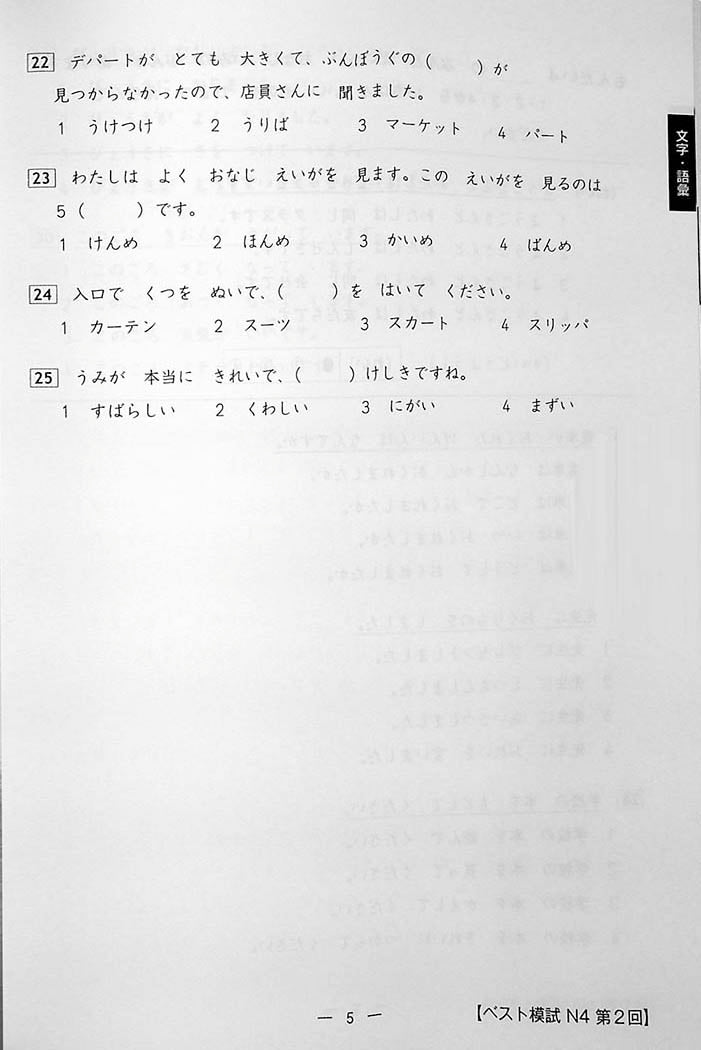 22 デパートが とても 大きくて、ぶんぼうぐの( )が
見つからなかったので、店員さんに 聞きました。
1 うけつけ 2 うりば 3 マーケット 4 パート
文字・語彙
23 わたしは よく おなじ えいがを 見ます。この えいがを 見るのは
5( )です。
1 けんめ 2 ほんめ 3 かいめ 4 ばんめ
24 入口で くつを ぬいで、( )を はいて ください。
1 カーテン 2 スーツ 3 スカート 4 スリッパ
25 うみが 本当に きれいで、( )けしきですね。
1 すばらしい 2 くわしい 3 にがい 4 まずい
— 5 —
【ベスト模試 N4 第2回】